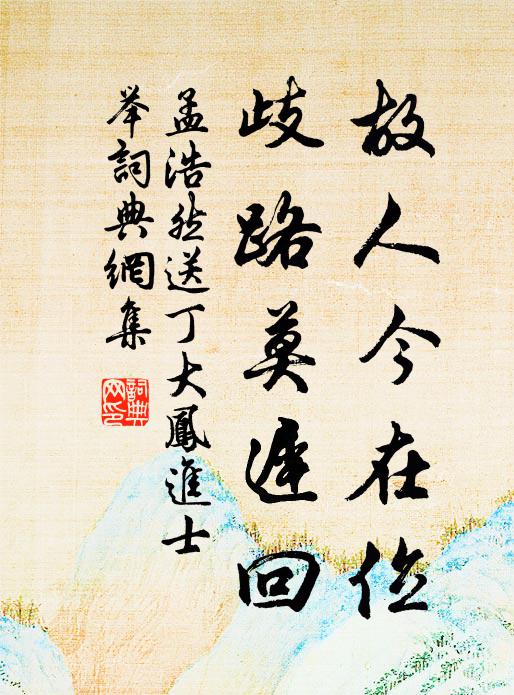 故人今在位
歧路莫遲回
孟浩然送丁大鳳進士
举詞典網集
詞典网印